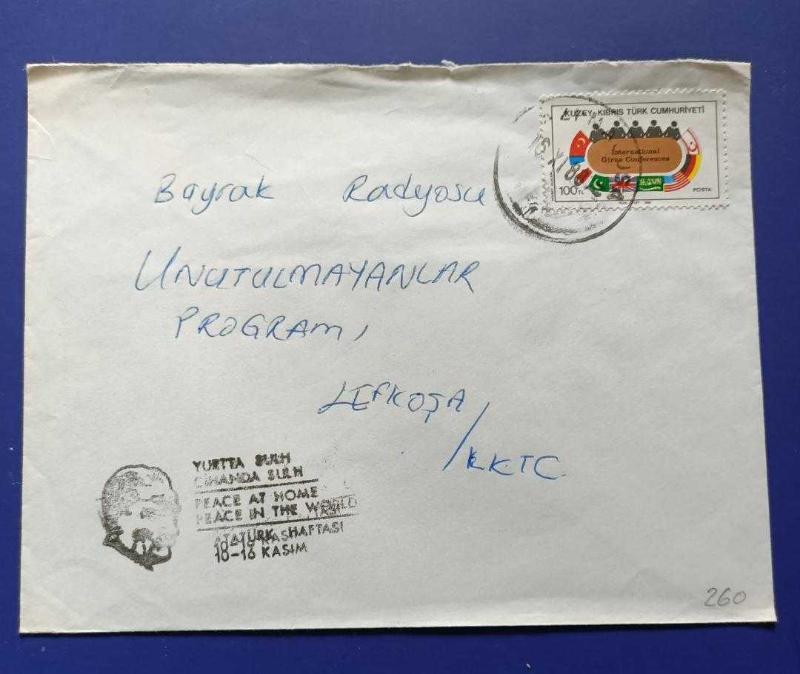 KUZEY KIBRIS TÜRK CUMHURİYETİ
International
Girne Conferences
100TL
POSTA
Bayrak Radyosu
UNUTULMAYANLAR
PROGRAMI
LEFKOŞA
/KKTC
YURTTA SULH
CİHANDA SULH
PEACE AT HOME
PEACE IN THE WORLD
ATATÜRK HAFTASI
10-16 KASIM
260